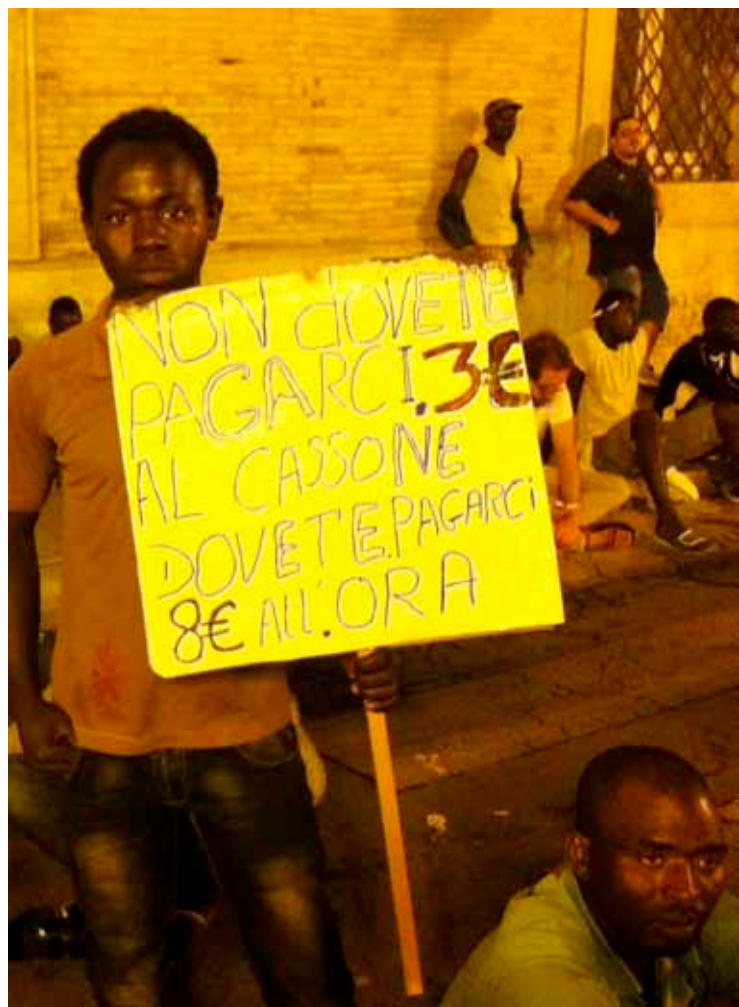 NON dOVETE
PAGARCI.3€
AL CASSONE
DOVETE.PAGARCi
8€ ALL'.ORA